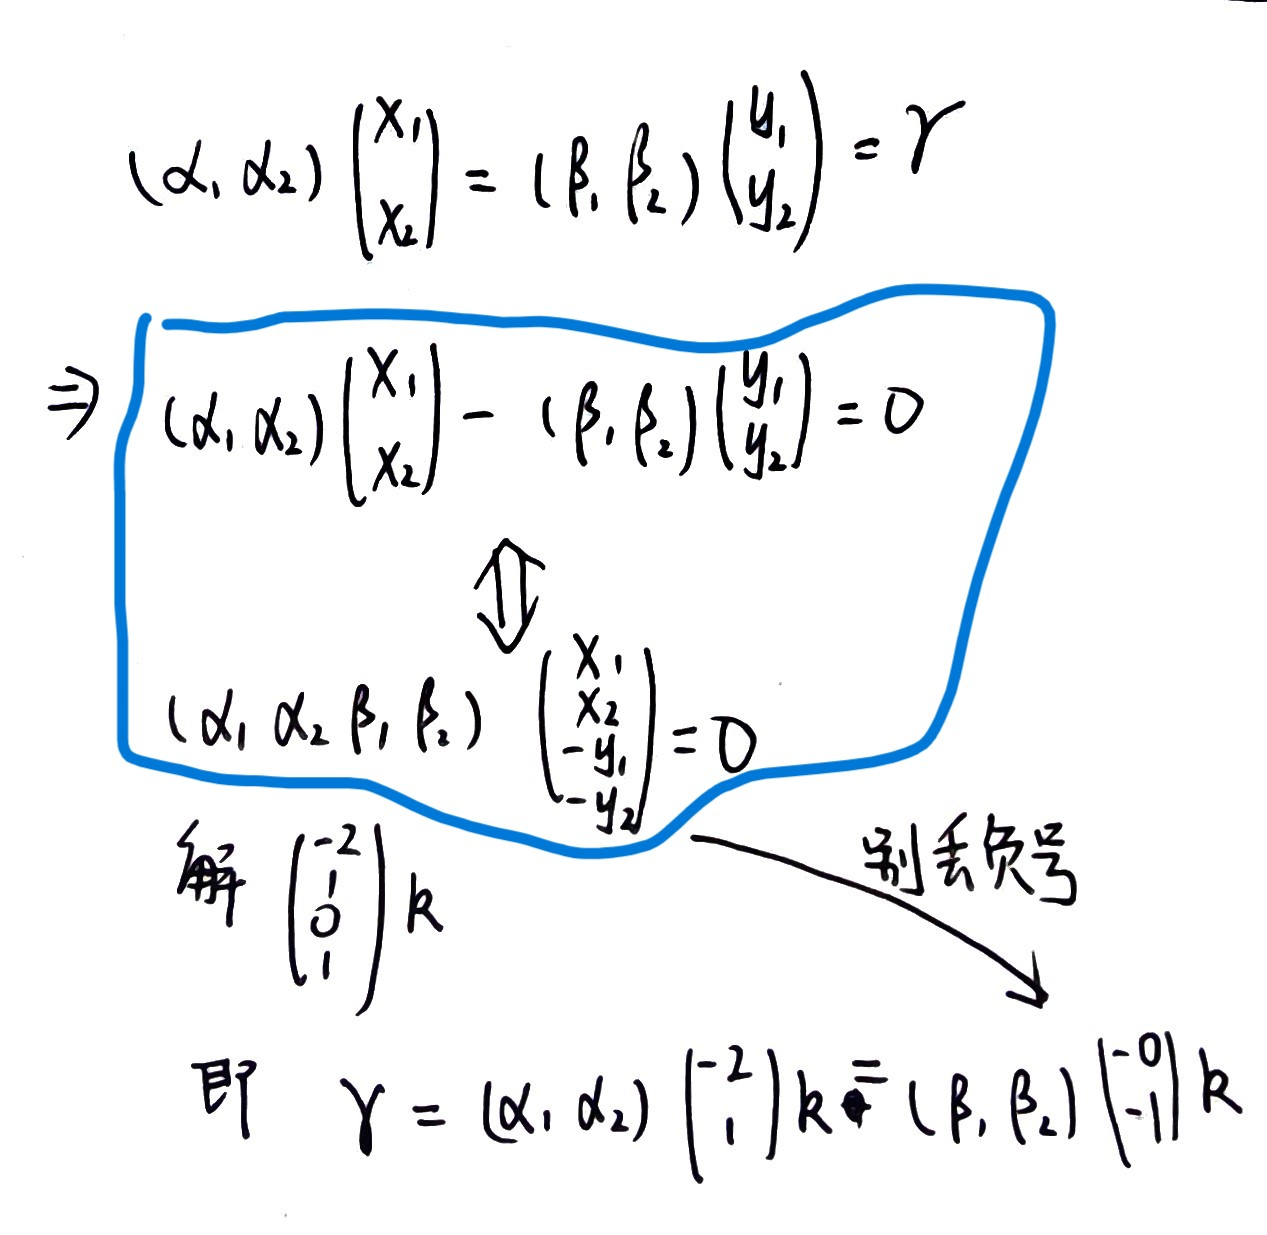 (α₁ α₂) (x₁ x₂) = (β₁ β₂) (y₁ y₂) = γ
⇒ (α₁ α₂) (x₁ x₂) - (β₁ β₂) (y₁ y₂) = 0
⇕
(α₁ α₂ β₁ β₂) (x₁ x₂ -y₁ -y₂) = 0
解 (-2 1 0 1) k
别丢负号
即 γ = (α₁ α₂) (-2 1) k = (β₁ β₂) (-0 -1) k